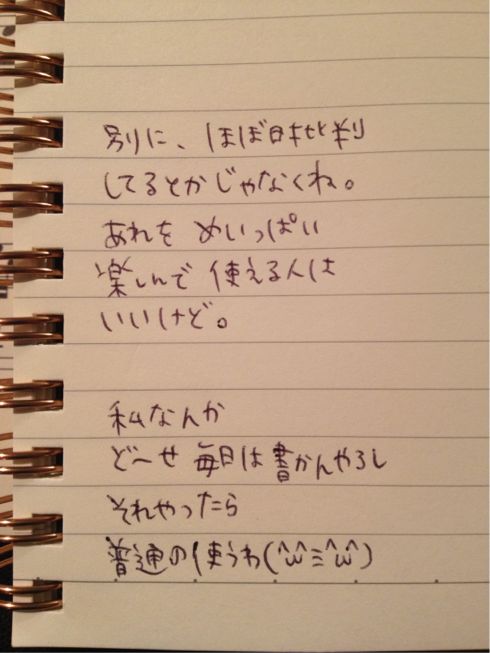 別に、ほぼ日批判
してるとかじゃなくね。
あれを めいっぱい
楽しんで 使える人は
いいけど。
私なんか
どーせ 毎日は書かんやろし
それやったら
普通の使うわ(^ω^≡^ω^)